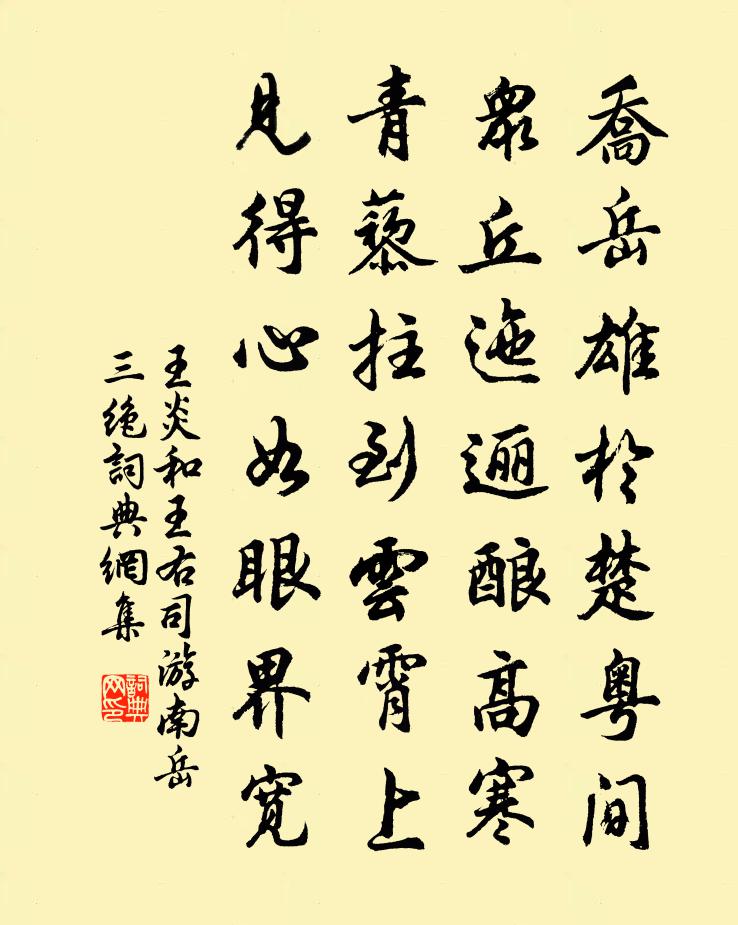 喬岳雄於楚粤間
衆丘迤逦酿高寒
青藜拄到雲霄上
見得心如眼界寬
王炎和王右司游南岳
三绝詞典網集
詞典网印